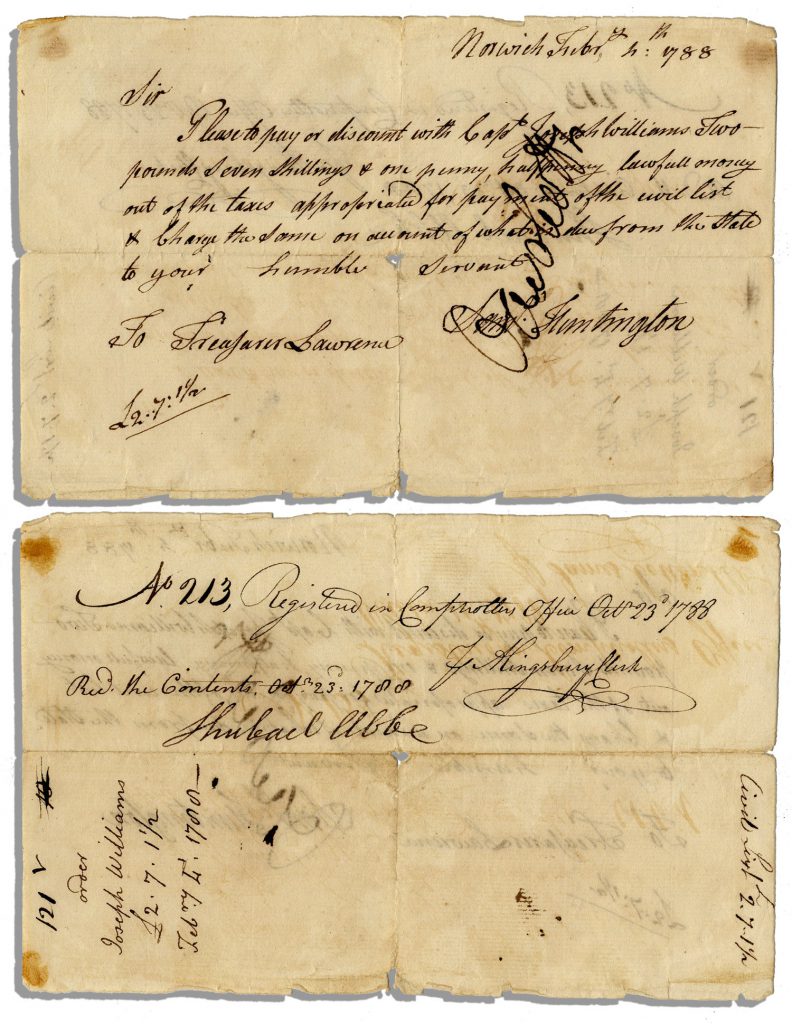 Norwich Febry 4:th 1788
Sir
Please to pay or discount with Capt Joseph Williams Two
pounds Seven Shillings & one penny, halfpenny lawfull money
out of the taxes appropriated for payment of the civil list
& Charge the Same on account of what is due from the State
to your humble Servant
Saml. Huntington
To Treasurer Lawrence
£2.7:1½
No 213, Registered in Comptrollers Office Octr 23d 1788
Kingsbury Clerk
Recd. the Contents. Octr. 23d: 1788
Shubael Abbe
121
order
Joseph Williams
£2.7.1½
Febry 4: 1788
Civil List 2.7.1½